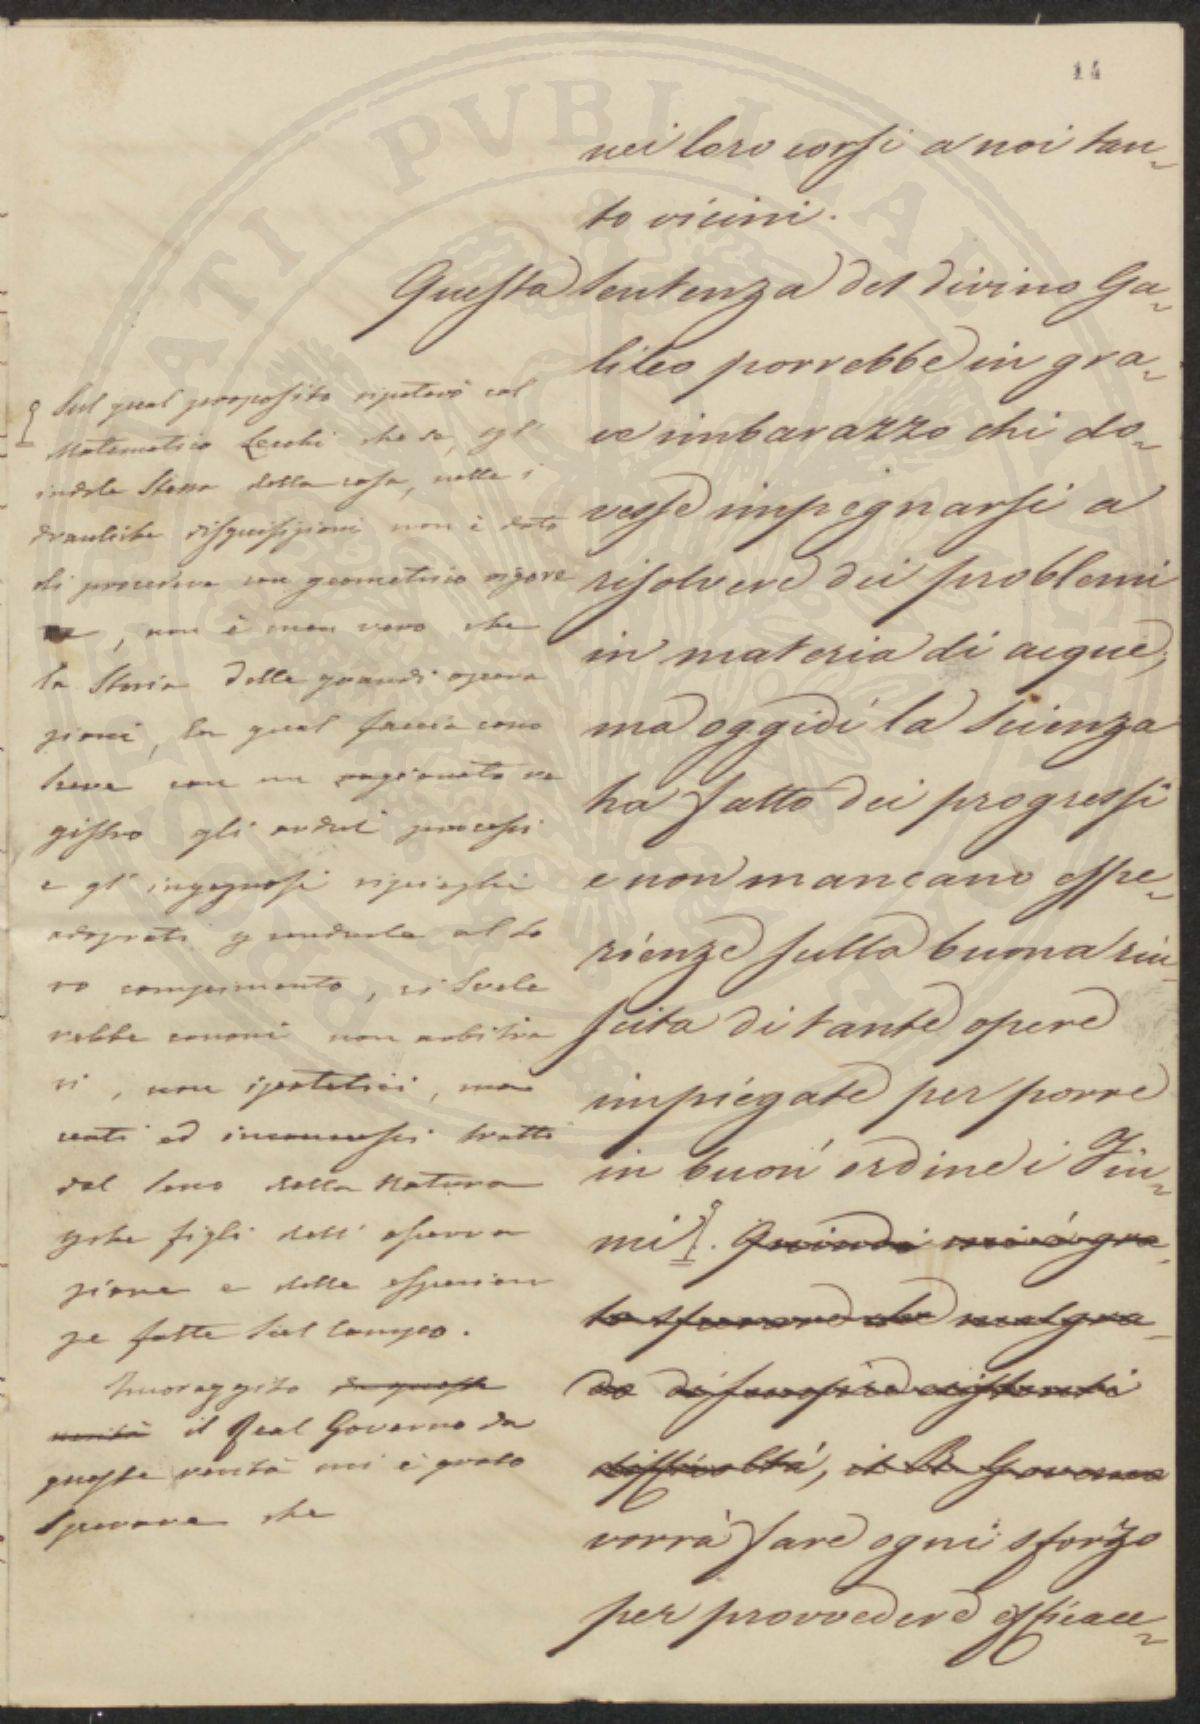 14
nei loro corsi a noi tan-
to vicini.
Questa sentenza del divino Ga-
lileo porrebbe in gra-
ve imbarazzo chi do-
vesse impegnarsi a
risolvere dei problemi
in materia di acque;
ma oggidì la scienza
ha fatto dei progressi
e non mancano espe-
rienze sulla buona riu-
scita di tante opere
impiegate per porre
in buon ordine i Fiu-
mi. Quindi mi è gra-
to sperare che malgra-
do
difficoltà, il R. Governo
vorrà fare ogni sforzo
per provvedere efficace-
Sul qual proposito ripeterò col
Matematico Lecchi che se,
indole stessa della cosa, nelle i
drauliche disquisizioni non è dato
di procedere con geometrico rigore
, non è men vero che
la Storia delle grandi opera
zioni, la qual faccia cono
scere con un ragionato re
gistro gli ardui processi
e gl'ingegnosi ripieghi
adoprati p condurle al lo
ro compimento, ci svele
rebbe canoni non arbitra
ri, non ipotetici, ma
certi ed inconcussi tratti
dal seno della Natura
perche figli dell'osserva
zione e delle esperien
ze fatte sul campo.
Incoraggito da queste
verità il Real Governo da
queste verità mi è grato
sperare che